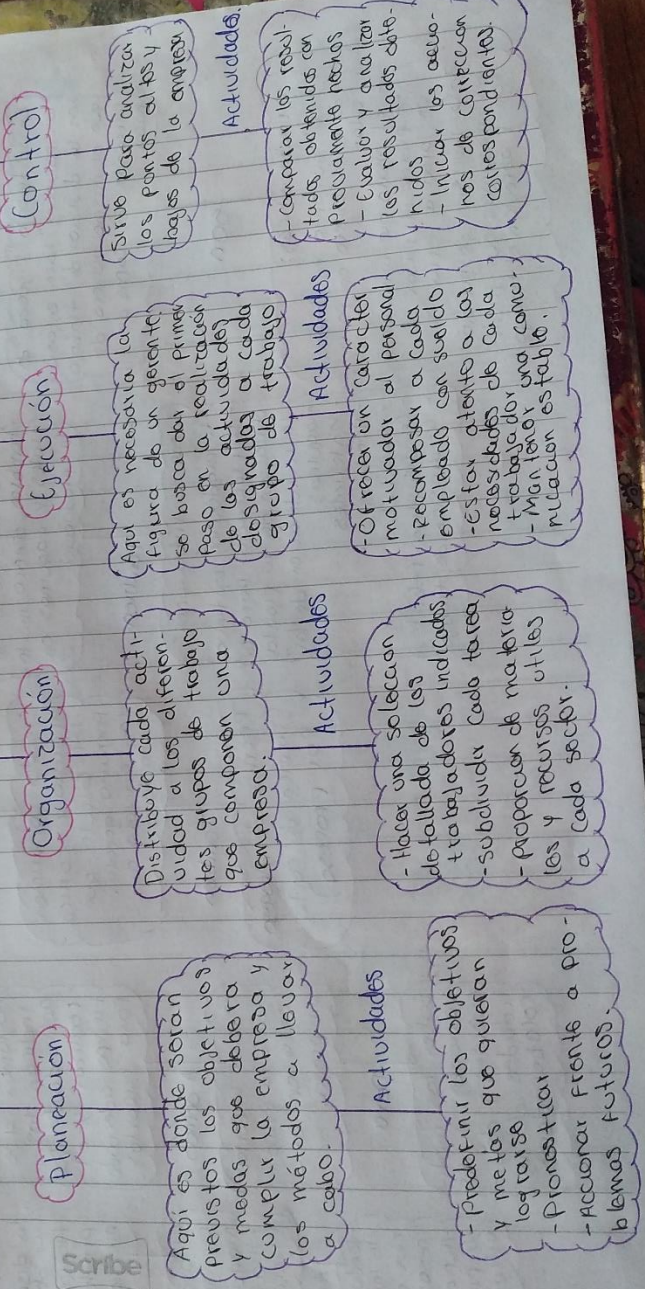 Planeación
Aquí es donde serán
previstos los objetivos
y medas que debera
cumplir la empresa y
los métodos a llevar
a cabo.
Actividades
-Predefinir los objetivos
y metas que quieran
lograrse
-Pronosticar
-Accionar frente a pro-
blemas futuros.
Organización
Distribuye cada acti-
vidad a los diferen-
tes grupos de trabajo
que componen una
empresa.
Actividades
-Hacer una selección
detallada de los
trabajadores indicados
-subdividir cada tarea
-proporcion de materia
les y recursos utiles
a cada sector.
Ejecución
Aquí es necesaria la
figura de un gerente,
se busca dar el primer
paso en la realización
de las actividades
designadas a cada
grupo de trabajo.
Actividades
-Ofrecer un carácter
motivador al personal
-Recompesar a cada
empleado con sueldo
-Estar atento a las
necesidades de cada
trabajador
-Mantener una comu-
nicación estable.
Control
Sirve para analizar
los puntos altos y
bajos de la empresa
Actividades.
-Comparar los resul-
tados obtenidos con
previamente hechos
-Evaluar y analizar
los resultados obte-
nidos
-Iniciar las accio-
nes de corrección
correspondientes.
Scribe